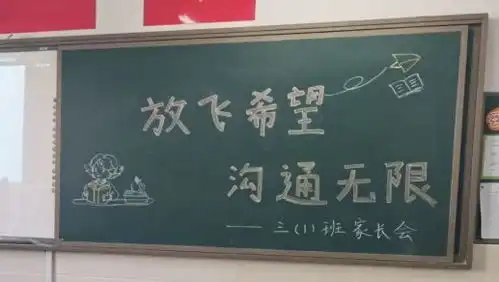 放飞希望
沟通无限
——三(1)班家长会